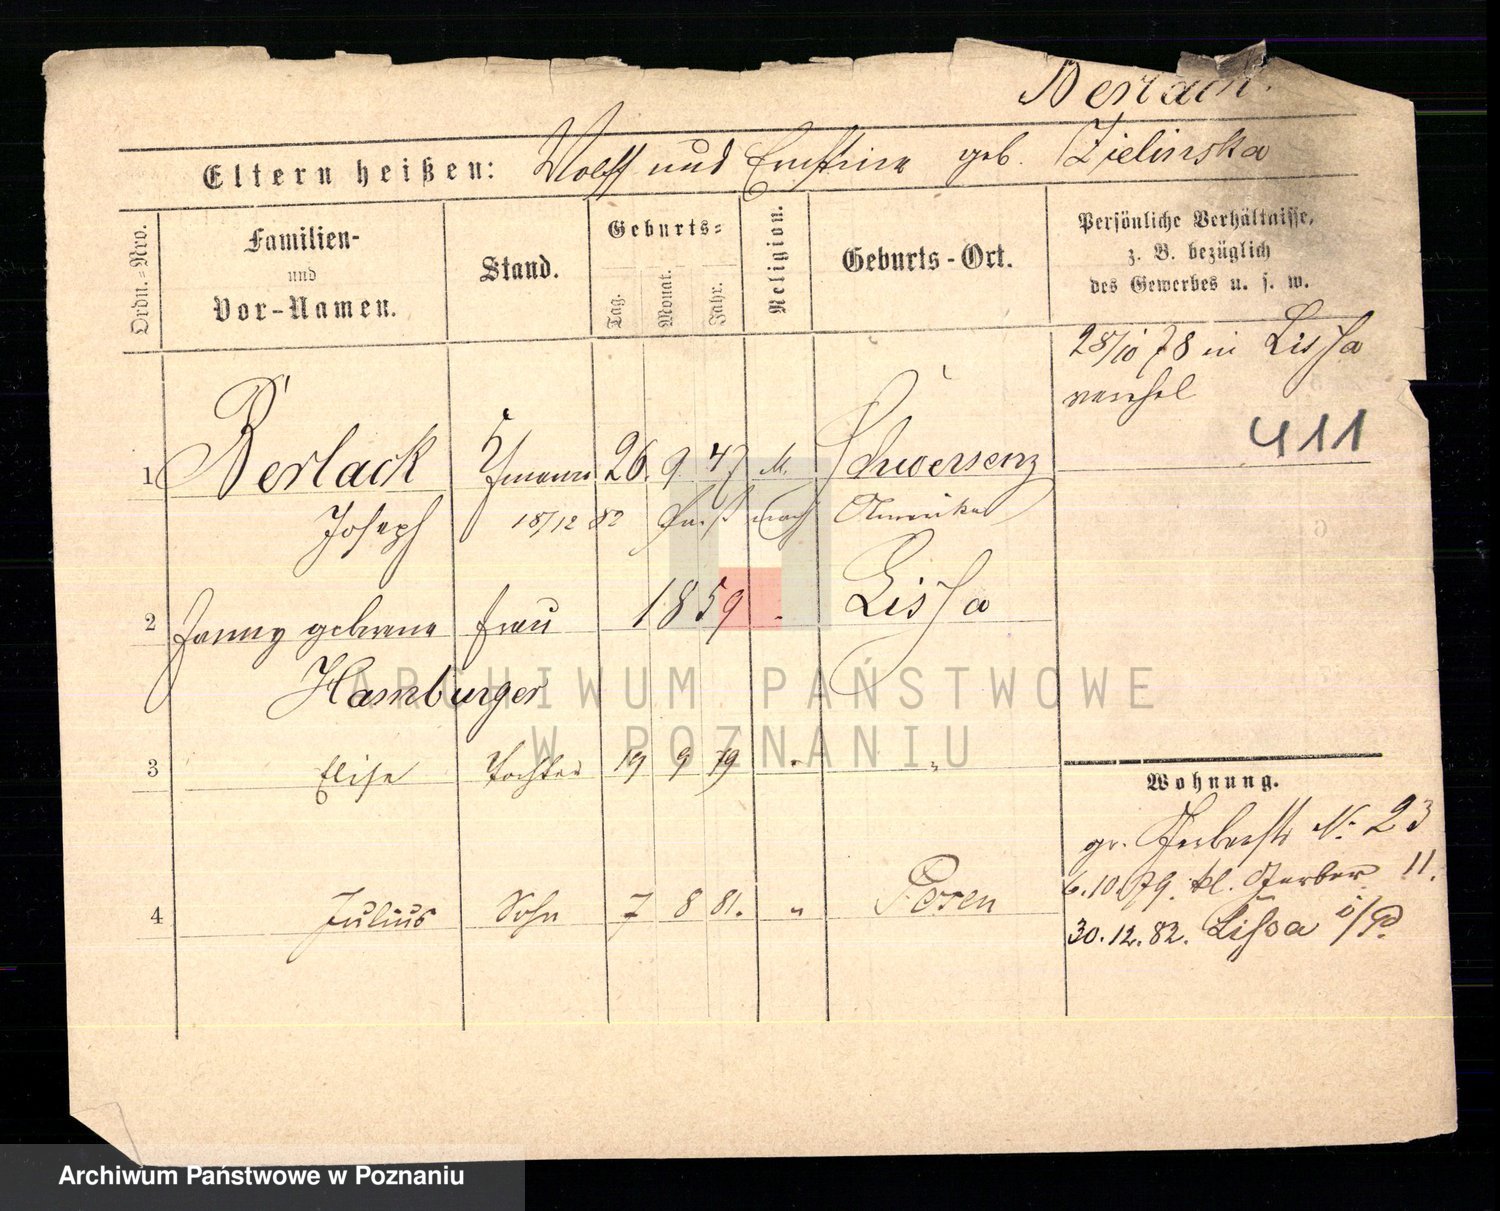 Berlack.
Eltern heißen: Wolff und Ernstine geb. Zielinska
Ordn.=Nro.
Familien-
und
Vor-Namen.
Stand.
Geburts=
Tag.
Monat.
Jahr.
Religion.
Geburts-Ort.
Persönliche Verhältnisse,
z. B. bezüglich
des Gewerbes u. s. w.
28/10 78 in Lissa
411
1 Berlack 26. 9. 47 M. Schwersenz
Joseph 18/12 82 nach Amerika
2 Fanny geborene Frau 1859 Lissa
Hamburger
3 Elise Tochter 19 9 79 " "
4 Julius Sohn 7 8 81. " Posen
Wohnung.
gr. Gerberstr. N. 23
6.10.79. kl. Gerber 11.
30.12.82. Lissa i/P.
ARCHIWUM PAŃSTWOWE
W POZNANIU
Archiwum Państwowe w Poznaniu